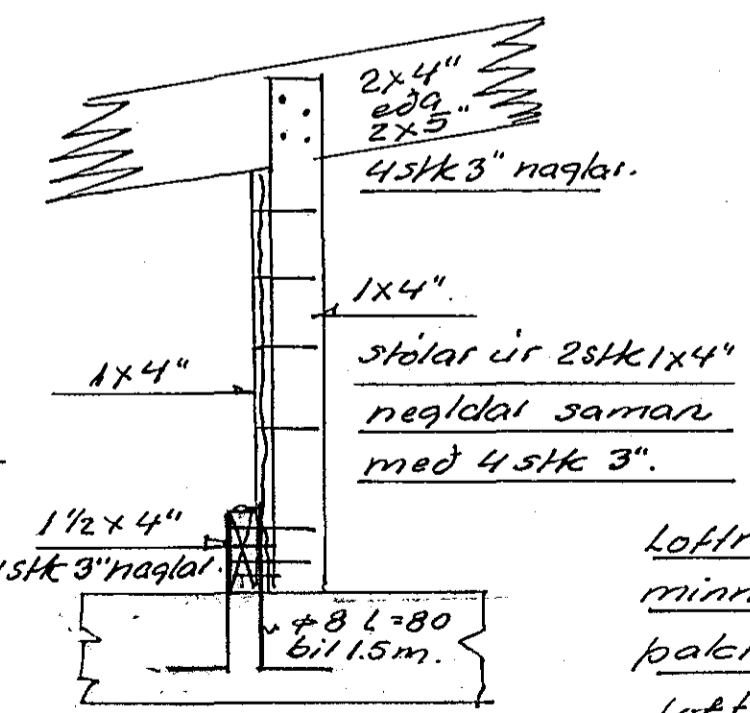 2x4"
eða
2x5"
4 stk 3" naglar.
1x4".
stólar úr 2stk 1x4"
negldar saman
með 4 stk 3".
1x4"
1 1/2 x 4"
stk 3" naglar.
ø8 l=80
bil 1.5m.
Loftr
minn
þakr
Loft